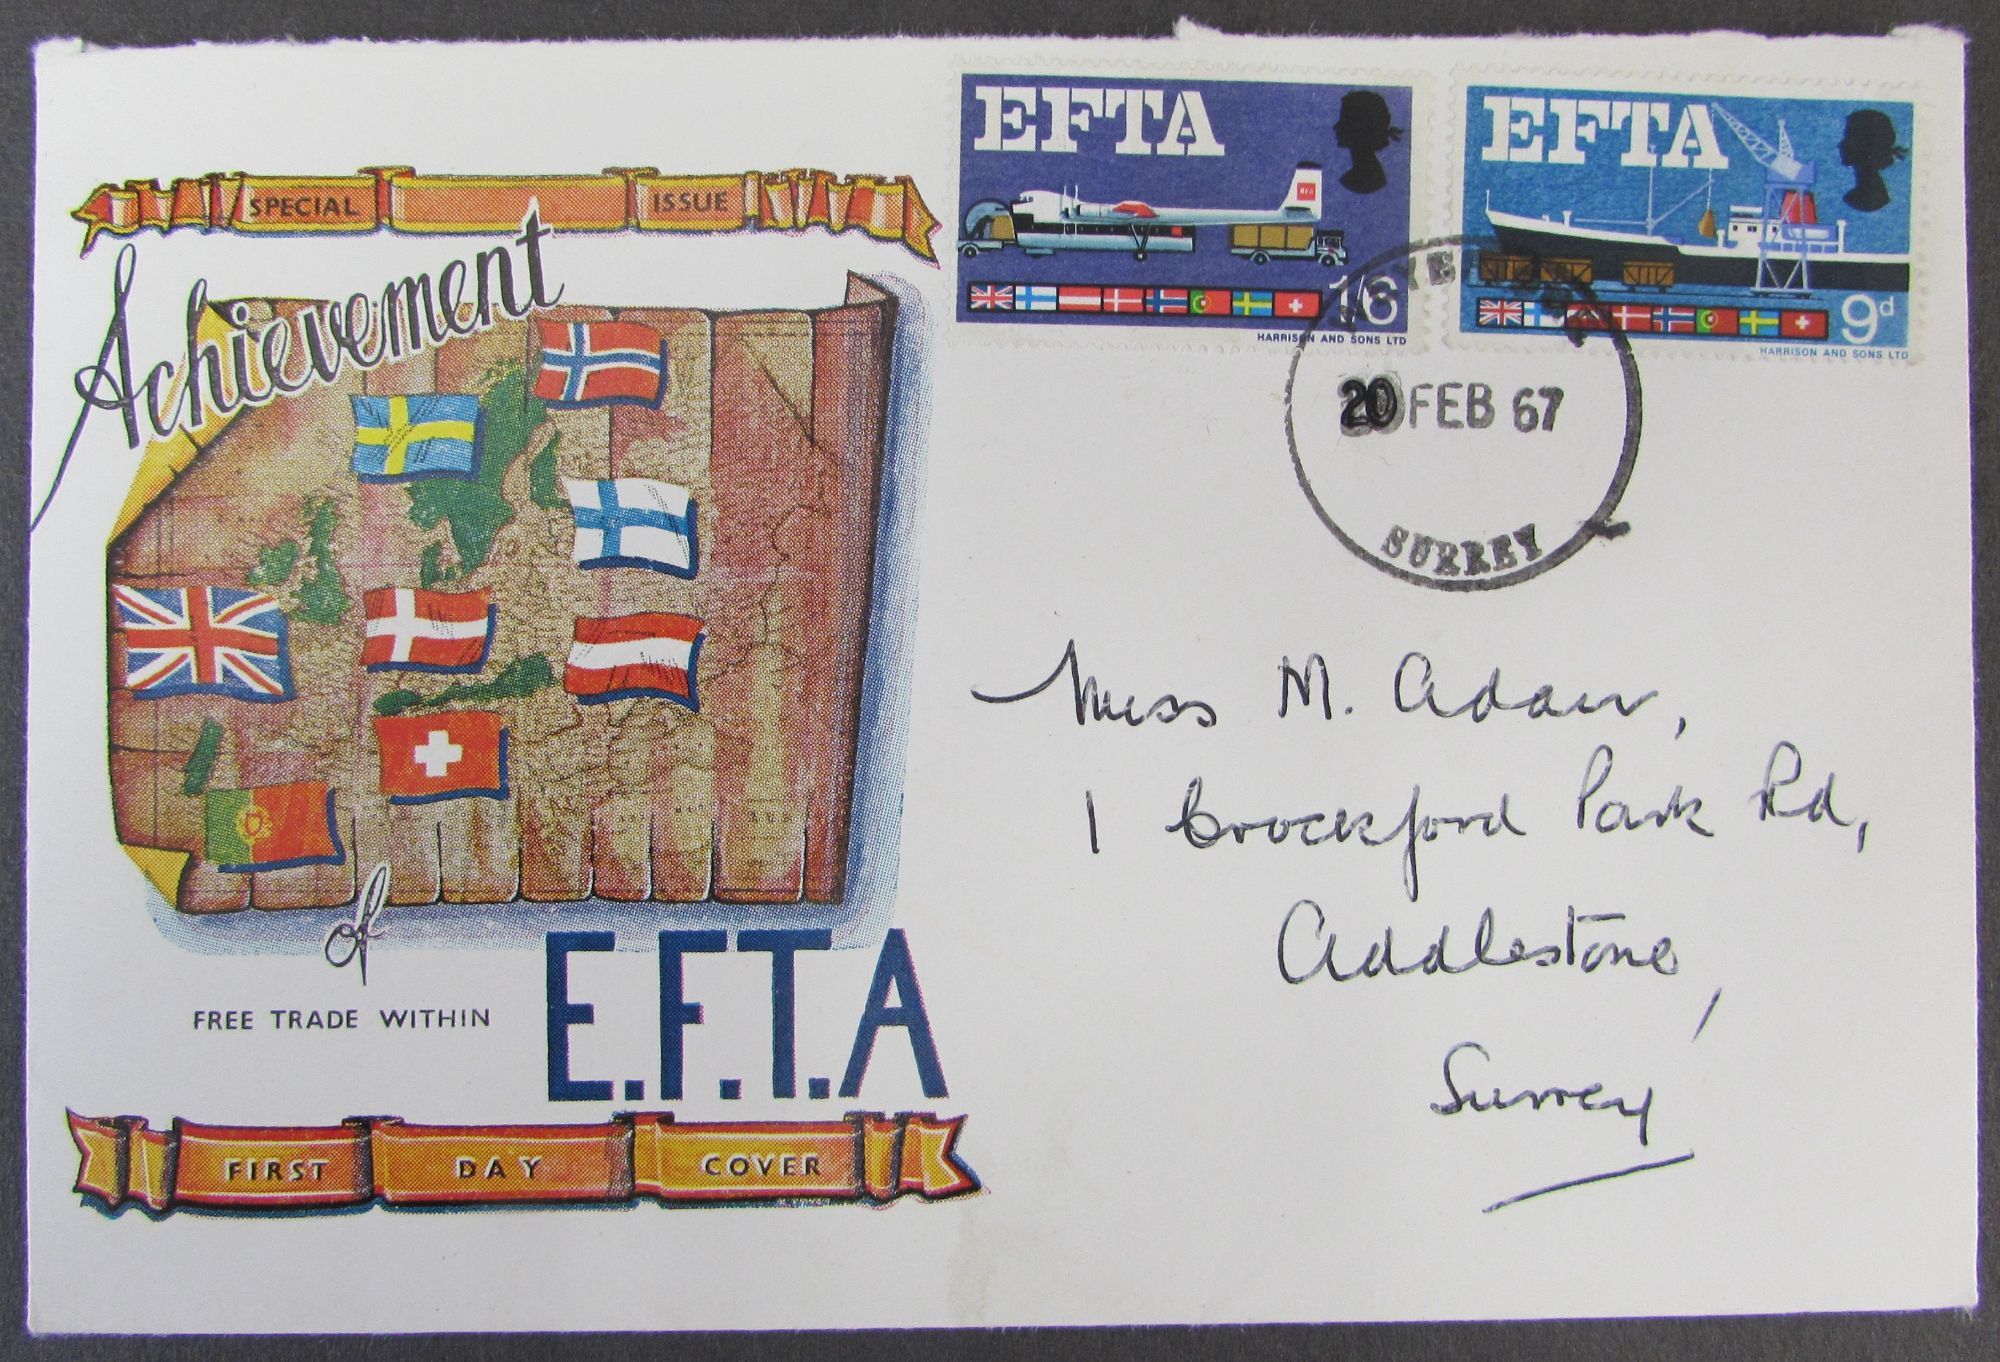 SPECIAL ISSUE
Achievement
of
FREE TRADE WITHIN
E.F.T.A
FIRST DAY COVER
EFTA
BEA
1'6
HARRISON AND SONS LTD
EFTA
9d
HARRISON AND SONS LTD
20 FEB 67
SURREY
Miss M. Adair,
1 Crockford Park Rd,
Addlestone,
Surrey